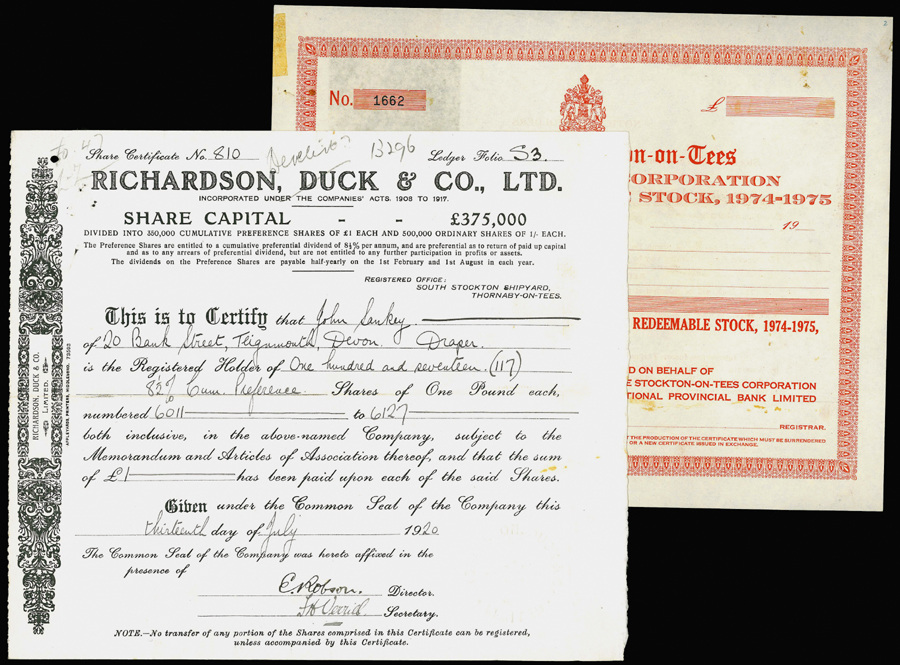 Share Certificate No. 810
13296
Ledger Folio S3.
RICHARDSON, DUCK & CO., LTD.
INCORPORATED UNDER THE COMPANIES' ACTS. 1908 TO 1917.
SHARE CAPITAL - - £375,000
DIVIDED INTO 350,000 CUMULATIVE PREFERENCE SHARES OF £1 EACH AND 500,000 ORDINARY SHARES OF 1/- EACH.
The Preference Shares are entitled to a cumulative preferential dividend of 8½% per annum, and are preferential as to return of paid up capital
and as to any arrears of preferential dividend, but are not entitled to any further participation in profits or assets.
The dividends on the Preference Shares are payable half-yearly on the 1st February and 1st August in each year.
REGISTERED OFFICE:
SOUTH STOCKTON SHIPYARD,
THORNABY-ON-TEES.
This is to Certify that John Sankey
of 20 Bank Street, Teignmouth, Devon. Draper.
is the Registered Holder of One hundred and seventeen (117)
8½% Cum. Preference Shares of One Pound each,
numbered 6011 to 6127
both inclusive, in the above-named Company, subject to the
Memorandum and Articles of Association thereof, and that the sum
of £1 has been paid upon each of the said Shares.
Given under the Common Seal of the Company this
thirteenth day of July 1920
The Common Seal of the Company was hereto affixed in the
presence of
E. Robson. Director.
Secretary.
NOTE.—No transfer of any portion of the Shares comprised in this Certificate can be registered,
unless accompanied by this Certificate.
RICHARDSON, DUCK & CO.
LIMITED.
No. 1662
£
n-on-Tees
CORPORATION
STOCK, 1974-1975
19
REDEEMABLE STOCK, 1974-1975,
D ON BEHALF OF
E STOCKTON-ON-TEES CORPORATION
TIONAL PROVINCIAL BANK LIMITED
REGISTRAR.
THE PRODUCTION OF THE CERTIFICATE WHICH MUST BE SURRENDERED
OR A NEW CERTIFICATE ISSUED IN EXCHANGE.